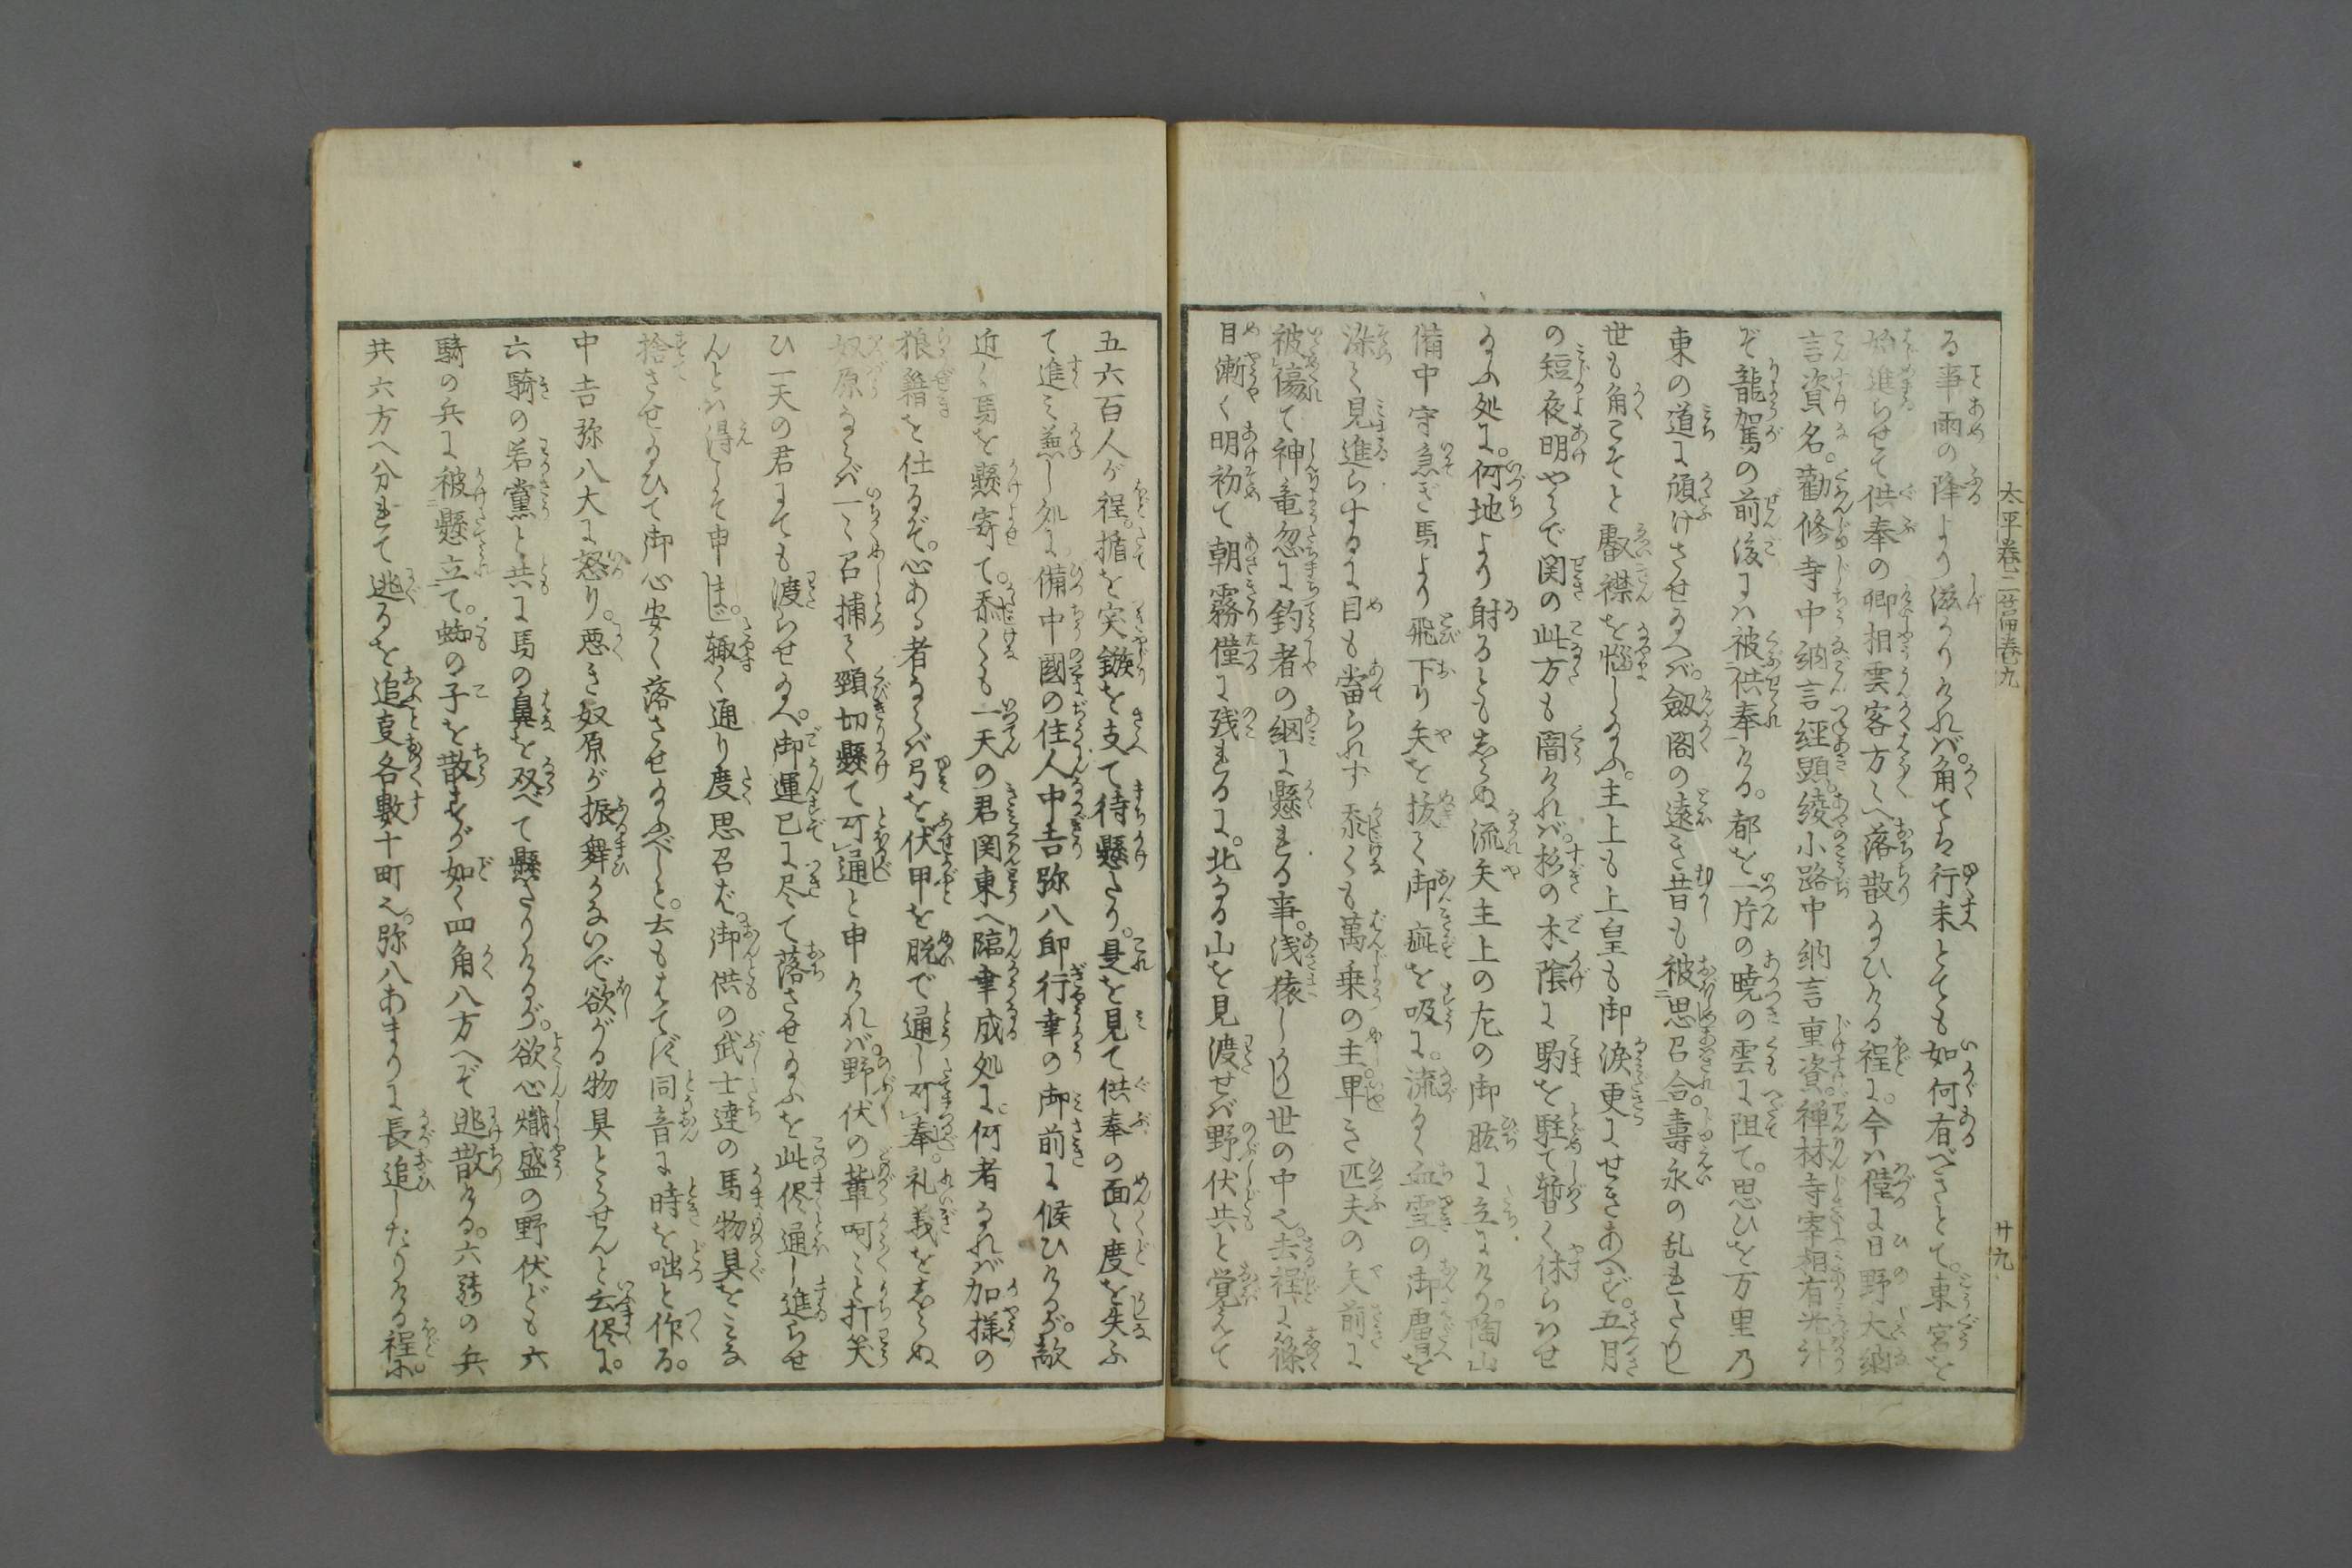 太平巻二 昔巻九
廿九
る事雨の降より滋かりければ。角ては行末とても如何有べきとて。東宮を
始進らせて供奉の卿相雲客方々へ落散給ひける程に。今は僅に日野大納
言資名。勧修寺中納言経顕。綾小路中納言重資。禅林寺宰相有光計
ぞ龍駕の前後には被供奉ける。都を一片の暁の雲に阻て。思ひを万里乃
東の道に傾けさせ給へば。劔閣の遠き昔も被思召合。壽永の乱れたりし
世も角こそと叡襟を悩し給ふ。主上も上皇も御涙更にせきあへず。五月
の短夜明やらで関の此方も闇ければ。杉の木陰に駒を駐て暫く休らはせ
給ふ処に。何地より射るとも志らぬ流矢主上の左の御肱に立にけり。陶山
備中守急ぎ馬より飛下り矢を抜て御疵を吸に。流るゝ血雪の御膚を
染て見進らするに目も當られず忝くも萬乗の主。卑き匹夫の矢前に
被傷て神竜忽に釣者の網に懸れる事。浅猿しかりし世の中也。去程に篠
目漸く明初て朝霧僅に残れるに。北なる山を見渡せば野伏共と覚えて
五六百人が程。楯を突鏃を支て待懸たり。是を見て供奉の面〻度を失ふ
て進み兼し処に備中國の住人中吉弥八郎行幸の御前に候ひけるが。敵
近く馬を懸寄て。忝くも一天の君関東へ臨幸成処に何者なれば加様の
狼藉を仕るぞ。心ある者ならば弓を伏甲を脱で通し可奉。礼義を志らぬ
奴原ならば一〻召捕て頸切懸て可通と申ければ。野伏の輩呵〻と打笑
ひ一天の君にても渡らせ給へ。御運已に尽て落させ給ふを此侭通し進らせ
んとは得こそ申まじ。輙く通り度思召ば。御供の武士達の馬物具をみな
捨させ給ひて御心安く落させ給ふべしと。去もはてず同音に時を咄と作る。
中吉弥八大に怒り。悪き奴原が振舞かないで欲がる物具とらせんと云侭に。
六騎の若黨と共に馬の鼻を双べて懸たりけるが。欲心熾盛の野伏ども六
騎の兵に被懸立て。蜘の子を散すが如く四角八方へぞ逃散ける。六騎の兵
共六方へ分れて逃るを追事各數十町也。弥八あまりに長追したりける程に。